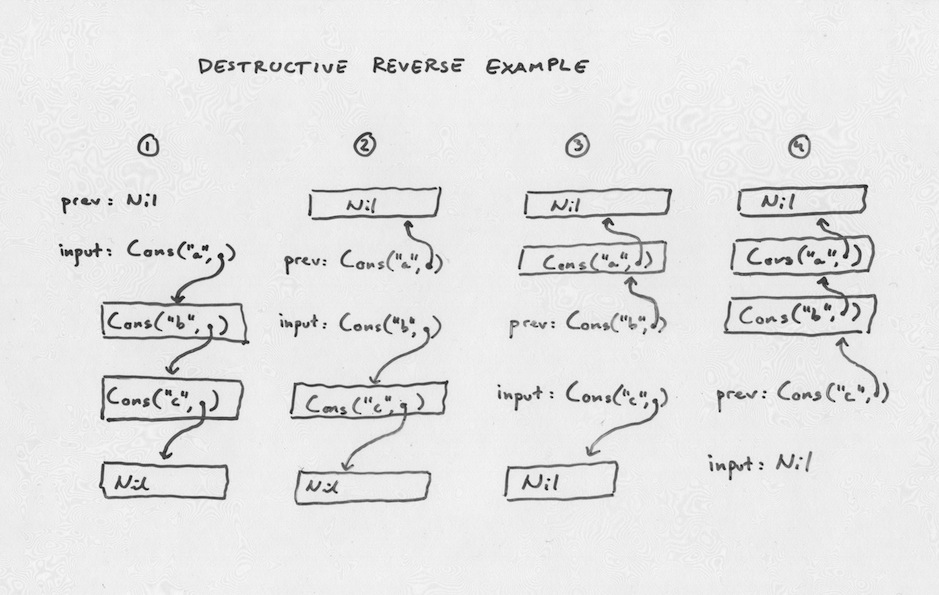 DESTRUCTIVE REVERSE EXAMPLE
1
prev: Nil
input: Cons("a", )
Cons("b", )
Cons("c", )
Nil
2
Nil
prev: Cons("a", )
input: Cons("b", )
Cons("c", )
Nil
3
Nil
Cons("a", )
prev: Cons("b", )
input: Cons("c", )
Nil
4
Nil
Cons("a", )
Cons("b", )
prev: Cons("c", )
input: Nil